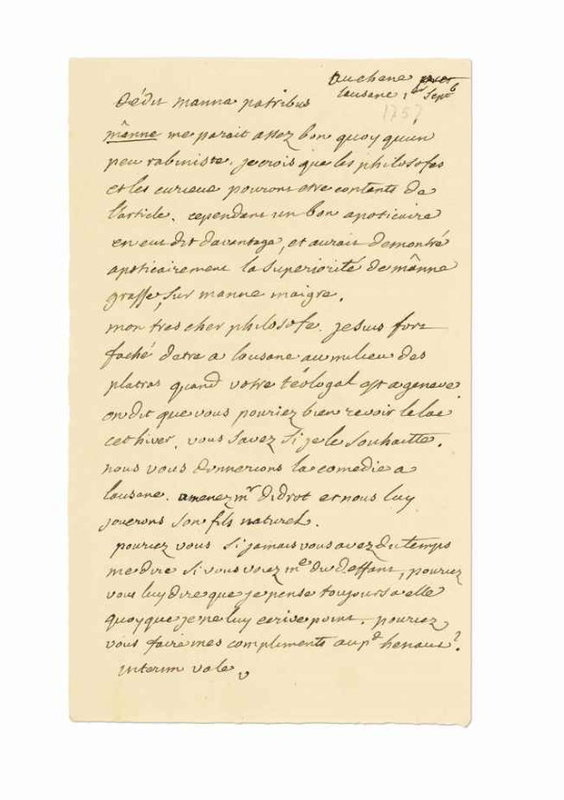 au chene
lausane 1er Sept
1757
dédit manna patribus
mânne me parait assez bon quoy quun
peu rabiniste. je crois que les philosofes
et les curieux pouront etre contents de
l'article. cependant un bon apoticaire
en eut dit davantage, et aurait demontré
apoticairement la superiorité de mânne
grasse, sur manne maigre.
mon tres cher philosofe. je suis fort
faché detre a lausane au milieu des
platras quand votre téologal est a geneve.
on dit que vous pouriez bien revoir le lac
cet hiver. vous savez si je le souhaitte.
nous vous donnerions la comedie a
lausane. amenez mr didrot et nous luy
jouerons son fils naturel.
pouriez vous si jamais vous avez du temps
me dire si vous voiez me du deffant, pouriez
vous luy dire que je pense toujours a elle
quoyque je ne luy ecrive point. pouriez
vous faire mes compliments au pt henaut?
interim vale v